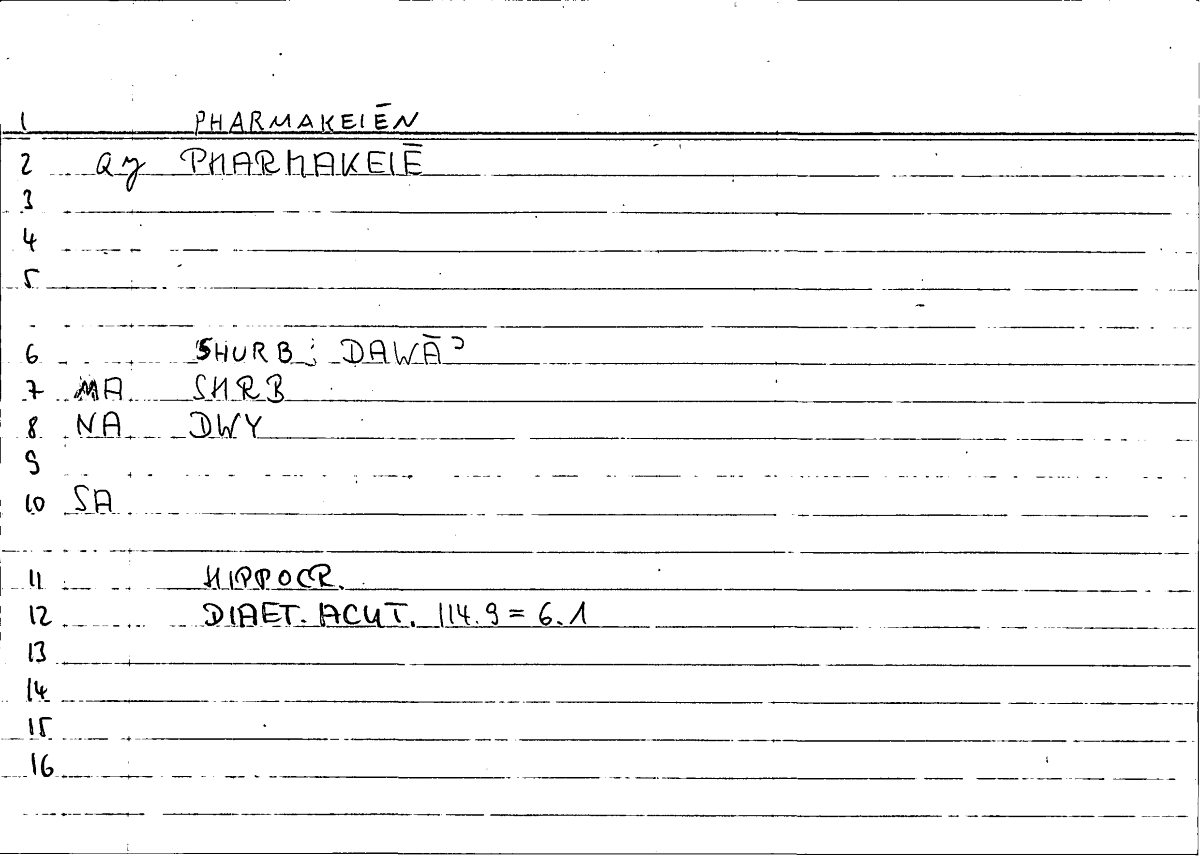 1 PHARMAKEIĒN
2 ay PHARMAKEIĒ
3
4
5
6 SHURB; DAWĀʾ
7 MA SHRB
8 NA DWY
9
10 SA
11 HIPPOCR.
12 DIAET. ACUT. 114.9 = 6.1
13
14
15
16